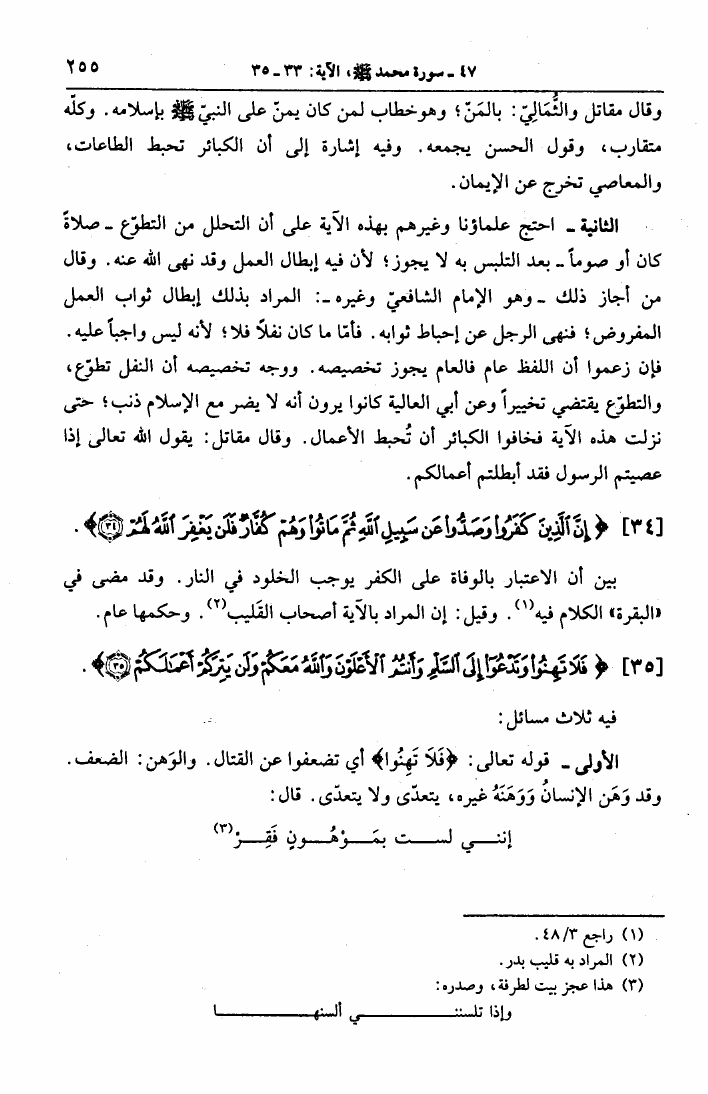 ٤٧ ـ سورة محمد ﷺ، الآية: ٣٣ ـ ٣٥
٢٥٥
وقال مقاتل والثُّمَالِيّ: بالمَنّ؛ وهو خطاب لمن كان يمنّ على النبيّ ﷺ بإسلامه. وكلّه
متقارب، وقول الحسن يجمعه. وفيه إشارة إلى أن الكبائر تحبط الطاعات،
والمعاصي تخرج عن الإيمان.
الثانية ـ احتج علماؤنا وغيرهم بهذه الآية على أن التحلل من التطوّع ـ صلاةً
كان أو صوماً ـ بعد التلبس به لا يجوز؛ لأن فيه إبطال العمل وقد نهى الله عنه. وقال
من أجاز ذلك ـ وهو الإمام الشافعيّ وغيره ـ: المراد بذلك إبطال ثواب العمل
المفروض؛ فنهى الرجل عن إحباط ثوابه. فأمّا ما كان نفلاً فلا؛ لأنه ليس واجباً عليه.
فإن زعموا أن اللفظ عام فالعام يجوز تخصيصه. ووجه تخصيصه أن النفل تطوّع،
والتطوّع يقتضي تخييراً وعن أبي العالية كانوا يرون أنه لا يضر مع الإسلام ذنب؛ حتى
نزلت هذه الآية فخافوا الكبائر أن تُحبط الأعمال. وقال مقاتل: يقول الله تعالى إذا
عصيتم الرسول فقد أبطلتم أعمالكم.
[٣٤] ﴿إِنَّ ٱلَّذِينَ كَفَرُوا۟ وَصَدُّوا۟ عَن سَبِيلِ ٱللَّهِ ثُمَّ مَاتُوا۟ وَهُمْ كُفَّارٌ فَلَن يَغْفِرَ ٱللَّهُ لَهُمْ ۝٣٤﴾.
بين أن الاعتبار بالوفاة على الكفر يوجب الخلود في النار. وقد مضى في
«البقرة» الكلام فيه(١). وقيل: إن المراد بالآية أصحاب القَليب(٢). وحكمها عام.
[٣٥] ﴿فَلَا تَهِنُوا۟ وَتَدْعُوٓا۟ إِلَى ٱلسَّلْمِ وَأَنتُمُ ٱلْأَعْلَوْنَ وَٱللَّهُ مَعَكُمْ وَلَن يَتِرَكُمْ أَعْمَـٰلَكُمْ ۝٣٥﴾.
فيه ثلاث مسائل:
الأولى ـ قوله تعالى: ﴿فَلَا تَهِنُوا﴾ أي تضعفوا عن القتال. والوَهن: الضعف.
وقد وَهَن الإنسانُ وَوَهَنَهُ غيره، يتعدّى ولا يتعدّى. قال:
إننـــي لســـت بمَـــوْهُـــونٍ فَقِـــرْ(٣)
(١) راجع ٤٨/٣.
(٢) المراد به قليب بدر.
(٣) هذا عجز بيت لطرفة، وصدره:
وإذا تلسننـــــــــي ألسنهـــــــــا